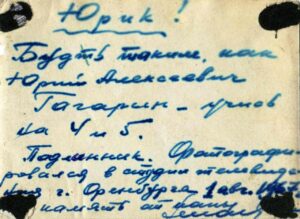 Юрик!
Будть таким, как
Юрий Алексеевич
Гагарин - учись
на 4 и 5.
Подлинник. Фотографи-
ровался в студии телевиде-
ния г. Оренбурга 1 авг.
память от папы